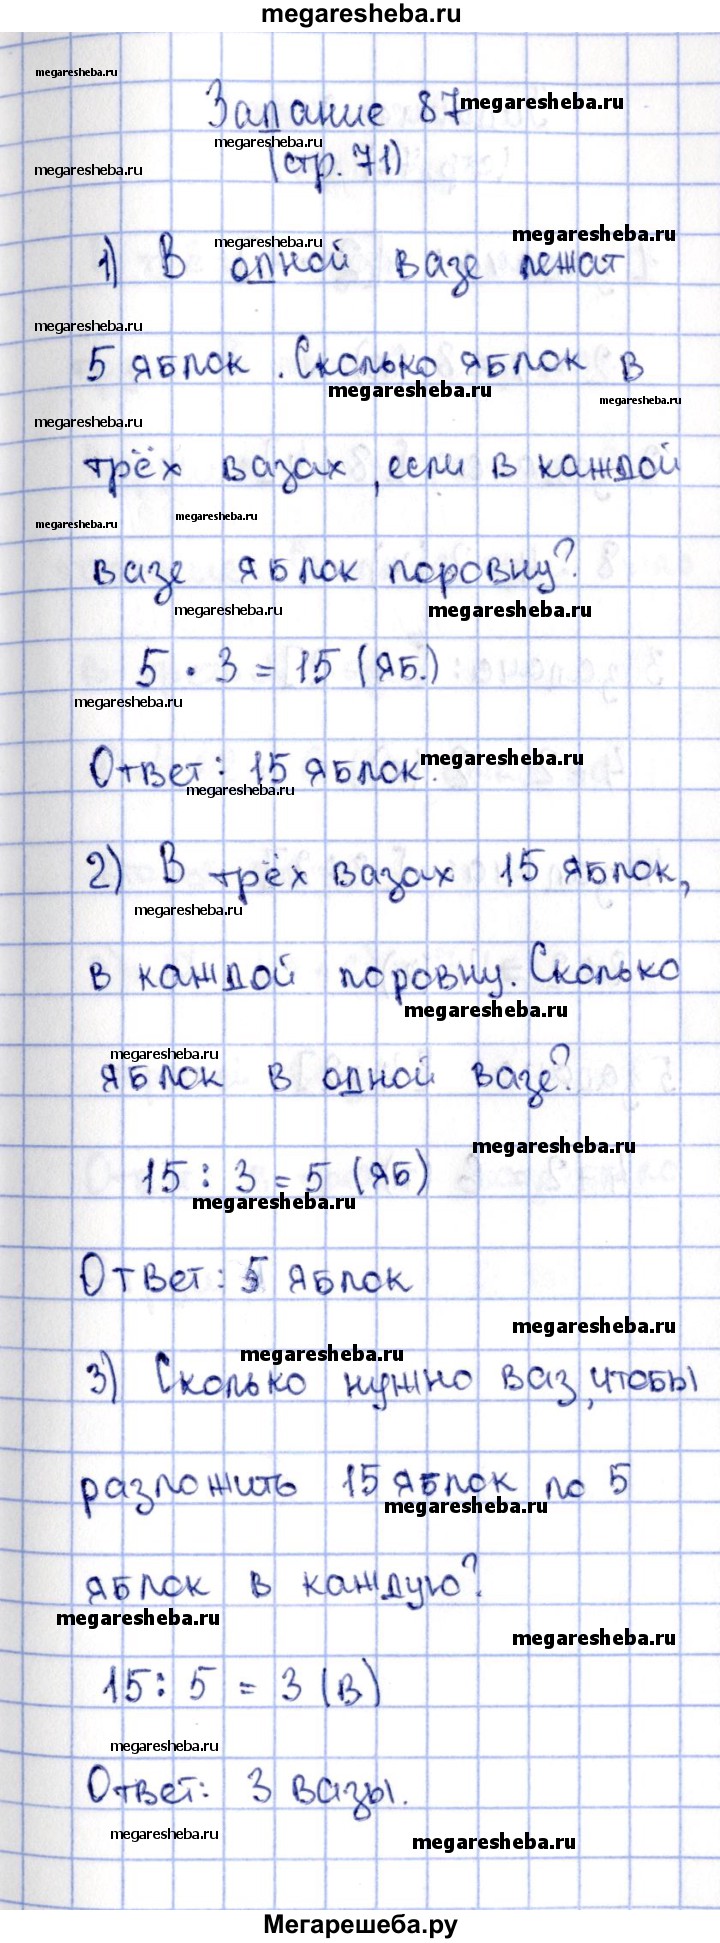 megaresheba.ru
megaresheba.ru
Задание 87 megaresheba.ru
megaresheba.ru
megaresheba.ru (стр. 71)
megaresheba.ru
megaresheba.ru
1) В одной вазе лежат
megaresheba.ru
5 яблок. Сколько яблок в
megaresheba.ru
megaresheba.ru
megaresheba.ru
трёх вазах, если в каждой
megaresheba.ru
megaresheba.ru
вазе яблок поровну?
megaresheba.ru megaresheba.ru
5 · 3 = 15 (яб.)
megaresheba.ru
Ответ: 15 яблок. megaresheba.ru
megaresheba.ru
2) В трёх вазах 15 яблок,
megaresheba.ru
в каждой поровну. Сколько
megaresheba.ru
megaresheba.ru
яблок в одной вазе?
megaresheba.ru
15 : 3 = 5 (яб)
megaresheba.ru
Ответ: 5 яблок
megaresheba.ru
megaresheba.ru
3) Сколько нужно ваз, чтобы
разложить 15 яблок по 5
megaresheba.ru
яблок в каждую?
megaresheba.ru
megaresheba.ru
15 : 5 = 3 (в)
megaresheba.ru
Ответ: 3 вазы.
megaresheba.ru
megaresheba.ru
Мегарешеба.ру